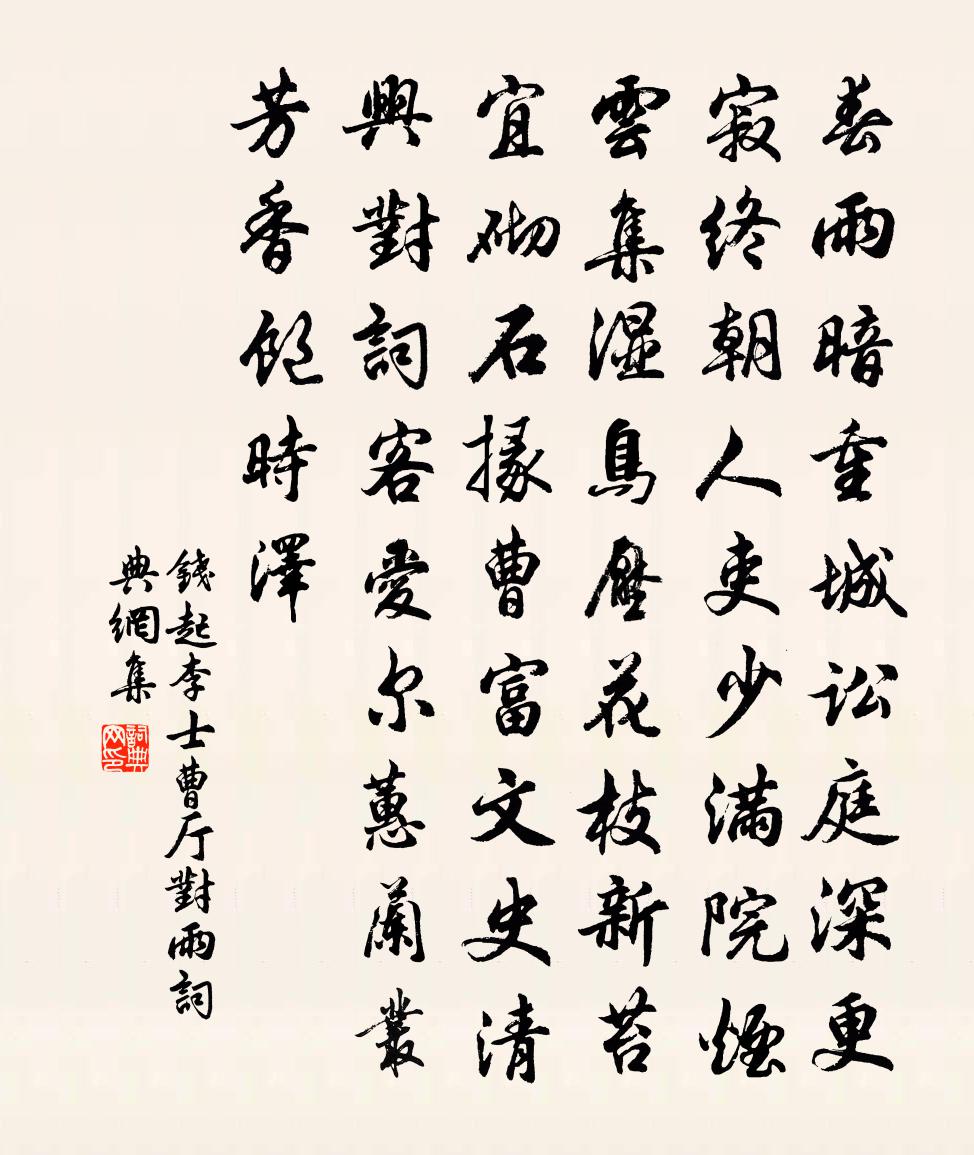 春雨暗重城讼庭深更
寂终朝人吏少满院煙
雲集湿鳥壓花枝新苔
宜砌石掾曹富文史清
興對詞客愛尔蕙蘭叢
芳香飽時澤
錢起李士曹厅對雨詞
典網集
詞典
网印